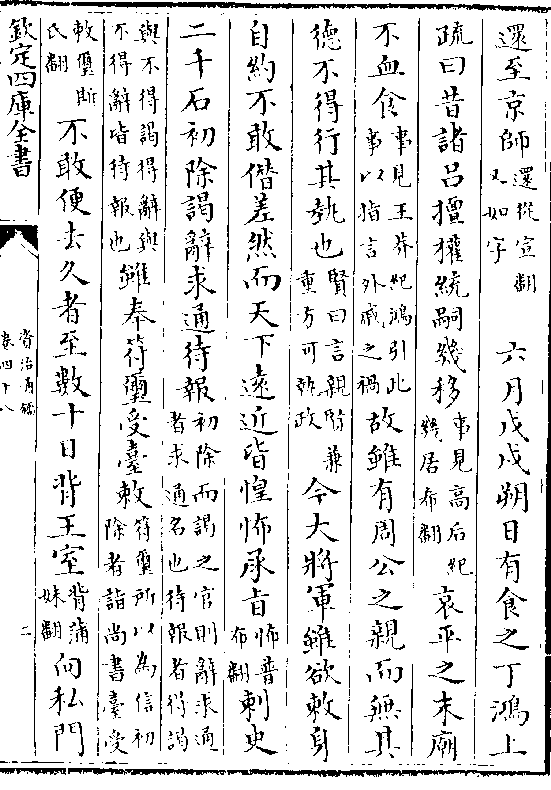 還至京師還從宣翻又如字　六月戊戌朔日有食之丁鴻上
疏曰昔諸吕擅權統嗣幾移事見高后紀幾居希翻哀平之末廟
不血食事見王莽紀鴻引此事以指言外戚之禍故雖有周公之親而無其
德不得行其埶也賢曰言親賢兼重方可執政今大將軍雖欲敕身
自約不敢僭差然而天下遠近皆惶怖承旨怖普布翻刺史
二千石初除謁辭求通待報初除而謁之官則辭求通者求通名也待報者得謁
與不得謁得辭與不得辭皆待報也雖奉符璽受臺敕符璽所以為信初除者詣尚書臺受
敕璽斯氏翻不敢便去久者至數十日背王室背蒲妹翻向私門
欽定四庫全書
資治通鑑
卷四十八
二